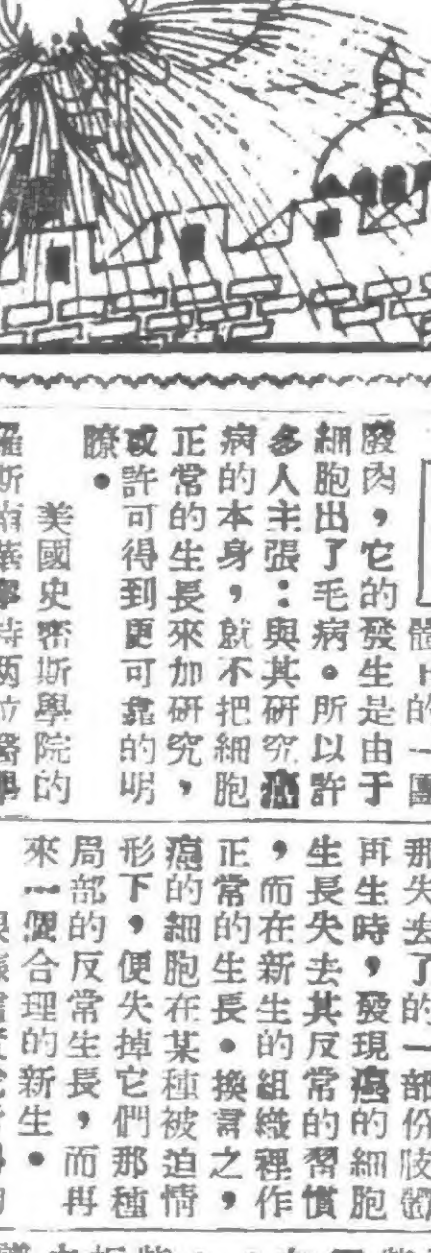 體中的一團
廢肉，它的發生是由于
細胞出了毛病。所以許
多人主張：與其研究癌
病的本身，就不把細胞
正常的生長來加研究，
或許可得到更可靠的明
瞭。
美國史密斯學院的
羅斯
兩位醫學
那失去了的一部份肢體
再生時，發現癌的細胞
生長失去其反常的習慣
，而在新生的組織裡作
正常的生長。換言之，
癌的細胞在某種被迫情
形下，便失掉它們那種
局部的反常生長，而再
來一個合理的新生。